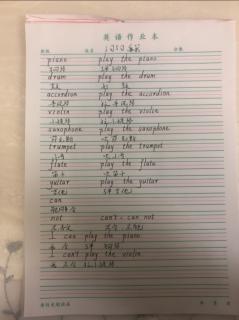 英语作业本
班级 姓名 分数
piano play the piano
钢琴 弹钢琴
drum play the drum
鼓 打鼓
accordion play the accordion
手风琴 拉手风琴
violin play the violin
小提琴 拉小提琴
saxophone play the saxophone
萨克斯 吹萨克斯
trumpet play the trumpet
小号 吹小号
flute play the flute
笛子 吹笛子
guitar play the guitar
吉他 弹吉他
can
能，会
not can't = can not
I can play the piano
我会 弹 钢琴
I can't play the violin
我不会 拉小提琴
年 月 日